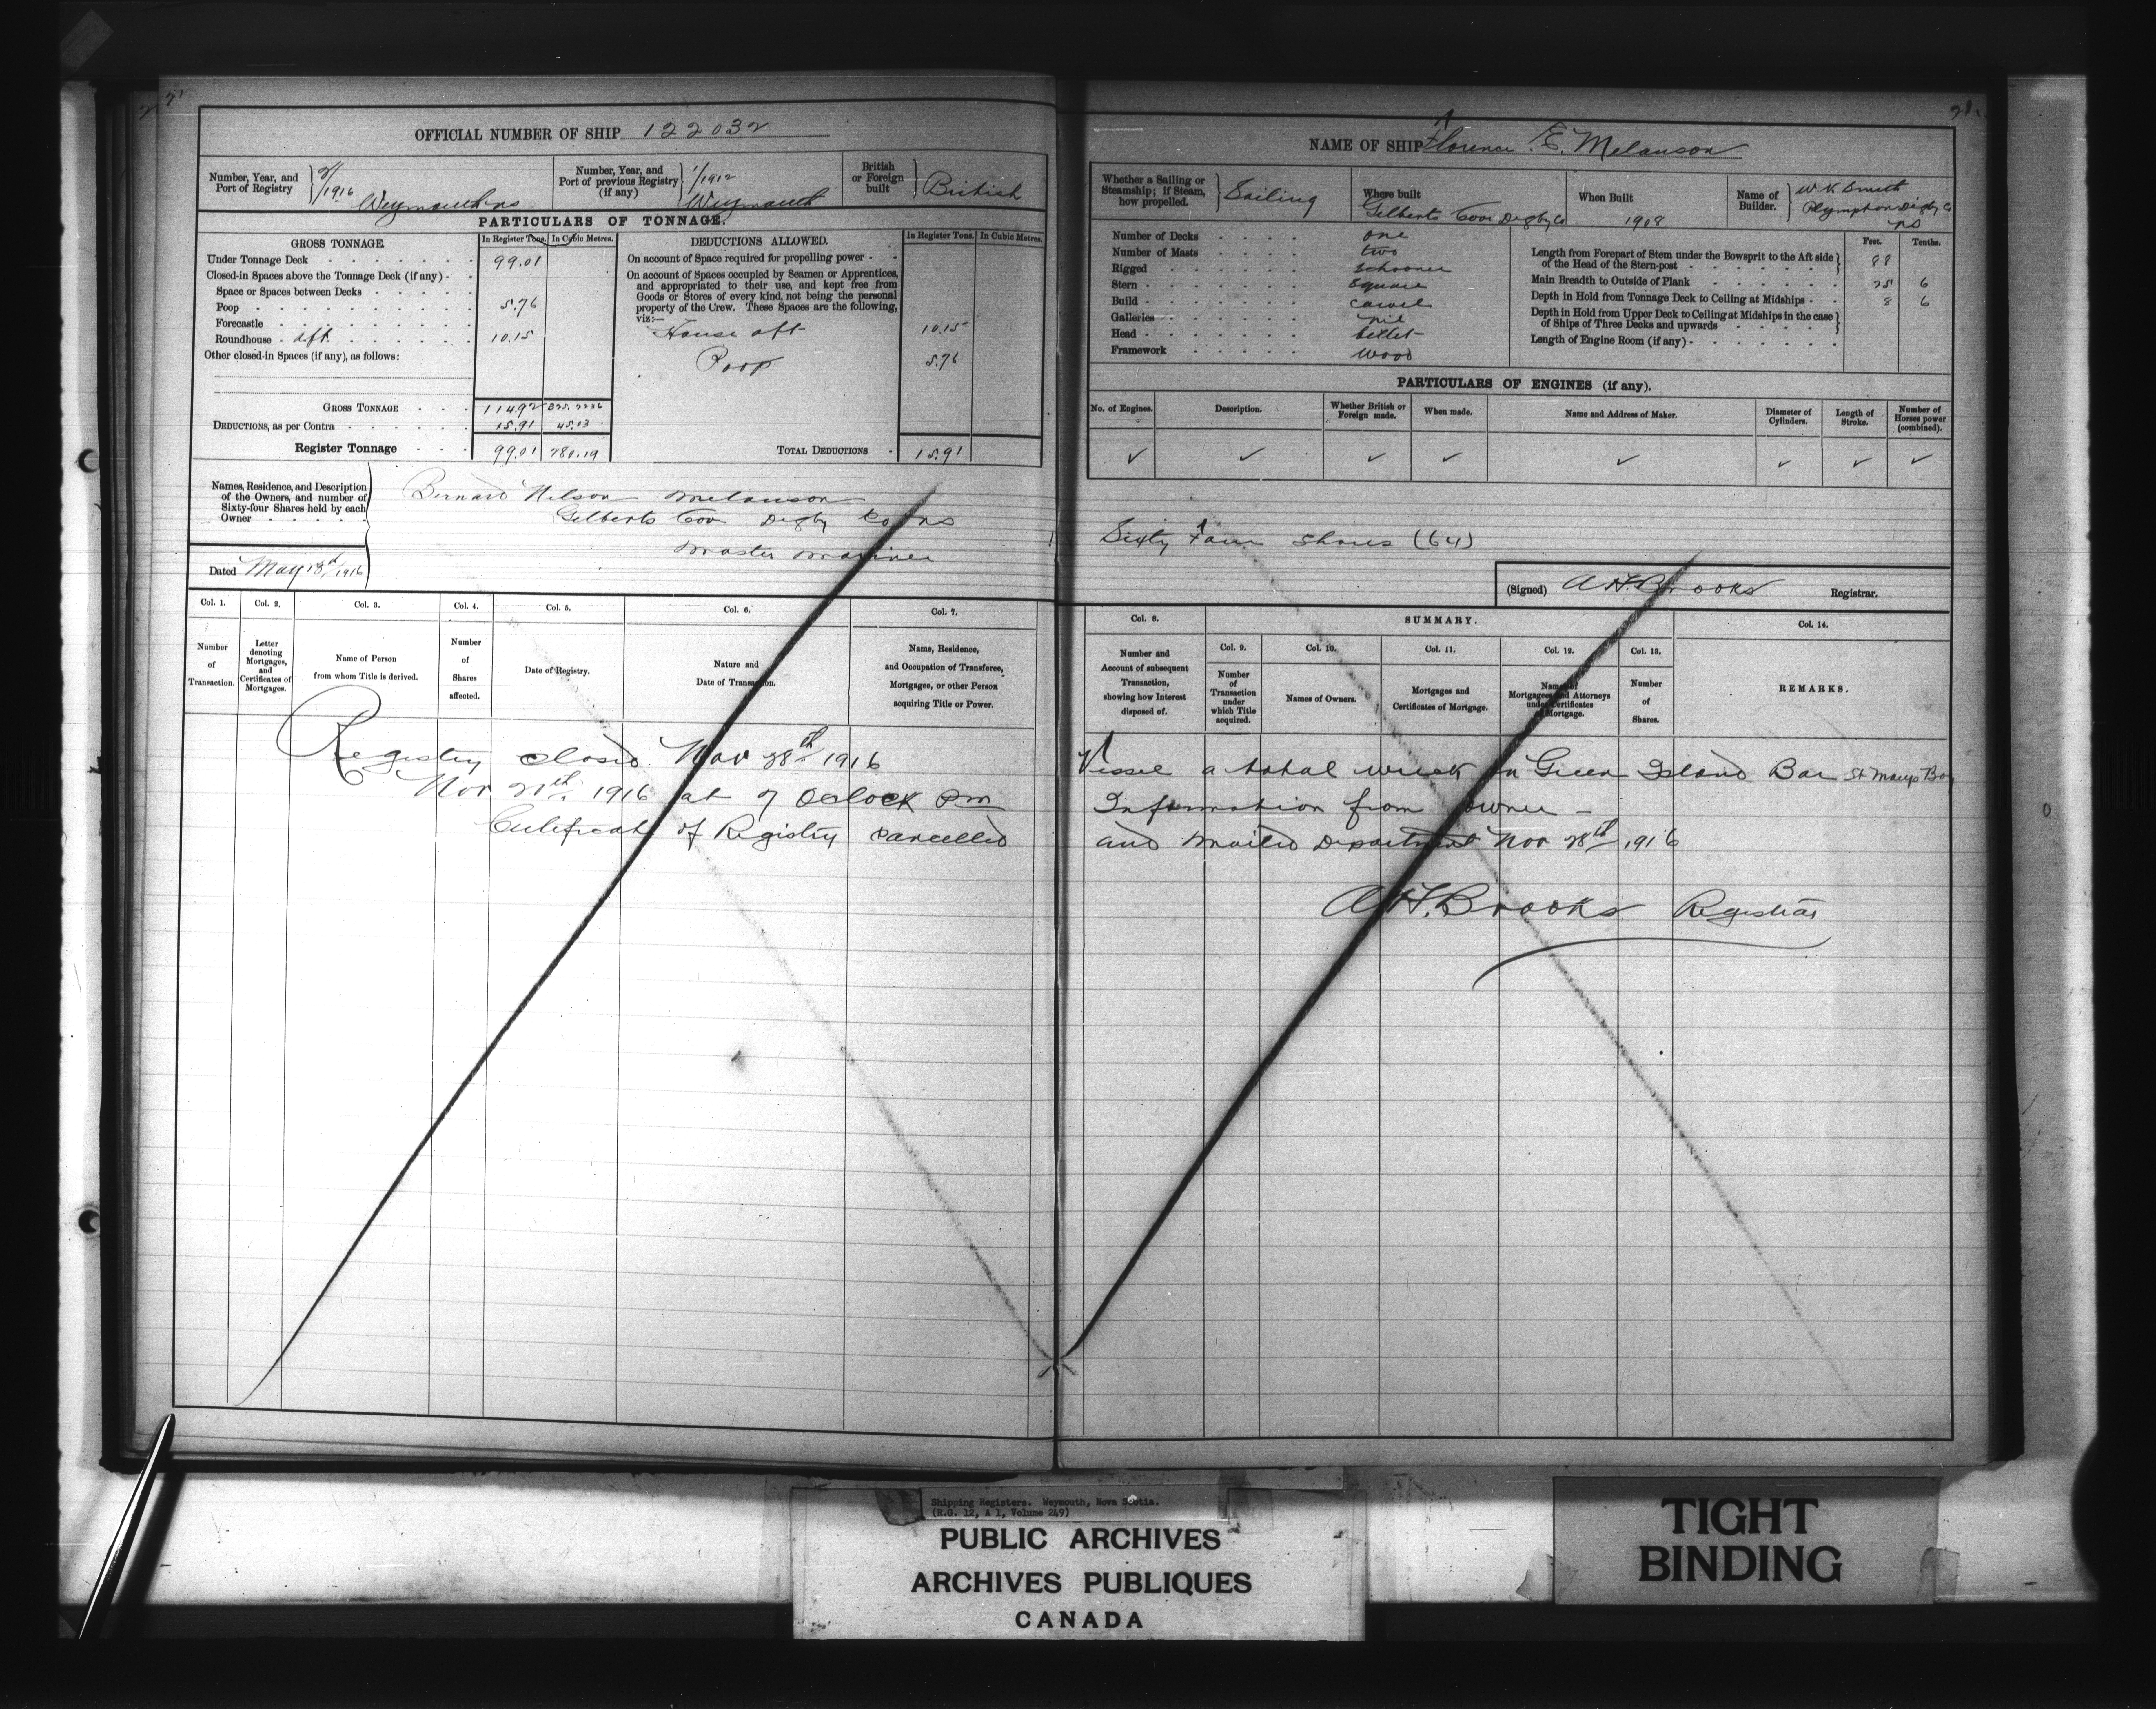 OFFICIAL NUMBER OF SHIP 122032
Number, Year, and Port of Registry 1916 Weymouth NS
Number, Year, and Port of previous Registry (if any) 1/1912 Weymouth
British or Foreign built British
PARTICULARS OF TONNAGE.
GROSS TONNAGE. In Register Tons. In Cubic Metres.
Under Tonnage Deck 99.01
Closed-in Spaces above the Tonnage Deck (if any)
Space or Spaces between Decks
Poop 5.76
Forecastle
Roundhouse aft 10.15
Other closed-in Spaces (if any), as follows:
GROSS TONNAGE 114.92 325.2236
DEDUCTIONS, as per Contra 15.91 45.03
Register Tonnage 99.01 280.19
DEDUCTIONS ALLOWED. In Register Tons. In Cubic Metres.
On account of Space required for propelling power
On account of Spaces occupied by Seamen or Apprentices,
and appropriated to their use, and kept free from
Goods or Stores of every kind, not being the personal
property of the Crew. These Spaces are the following,
viz:—
House aft 10.15
Poop 5.76
TOTAL DEDUCTIONS 15.91
Names, Residence, and Description of the Owners, and number of Sixty-four Shares held by each Owner
Bernard Nelson Melanson
Gilberts Cove Digby Co NS
Master Mariner
Dated May 13th 1916
Col. 1. Col. 2. Col. 3. Col. 4. Col. 5. Col. 6. Col. 7.
Number of Transaction.
Letter denoting Mortgages, and Certificates of Mortgages.
Name of Person from whom Title is derived.
Number of Shares affected.
Date of Registry.
Nature and Date of Transaction.
Name, Residence, and Occupation of Transferee, Mortgagee, or other Person acquiring Title or Power.
Registry closed Nov 28th 1916
Nov 21th 1916 at 7 Oclock Pm
Certificate of Registry cancelled
21.
NAME OF SHIP Florence E. Melanson
Whether a Sailing or Steamship; if Steam, how propelled. Sailing
Where built Gilberts Cove Digby Co
When Built 1908
Name of Builder. W K Smith Plympton Digby Co NS
Number of Decks one
Number of Masts two
Rigged Schooner
Stern Square
Build carvel
Galleries nil
Head billet
Framework wood
Feet. Tenths.
Length from Forepart of Stem under the Bowsprit to the Aft side of the Head of the Stern-post 88
Main Breadth to Outside of Plank 25 6
Depth in Hold from Tonnage Deck to Ceiling at Midships 8 6
Depth in Hold from Upper Deck to Ceiling at Midships in the case of Ships of Three Decks and upwards
Length of Engine Room (if any)
PARTICULARS OF ENGINES (if any).
No. of Engines. Description. Whether British or Foreign made. When made. Name and Address of Maker. Diameter of Cylinders. Length of Stroke. Number of Horses power (combined).
✓ ✓ ✓ ✓ ✓ ✓ ✓ ✓
Sixty Four Shares (64)
(Signed) A H Brooks Registrar.
Col. 8. SUMMARY. Col. 14.
Col. 9. Col. 10. Col. 11. Col. 12. Col. 13.
Number and Account of subsequent Transaction, showing how Interest disposed of.
Number of Transaction under which Title acquired.
Names of Owners.
Mortgages and Certificates of Mortgage.
Names of Mortgagees and Attorneys under Certificates of Mortgage.
Number of Shares.
REMARKS.
Vessel a total wreck on Green Island Bar St Marys Bay
Information from owner –
and mailed Department Nov 28th 1916
A H. Brooks Registrar
Shipping Registers. Weymouth, Nova Scotia.
(R.G. 12, A 1, Volume 249)
PUBLIC ARCHIVES
ARCHIVES PUBLIQUES
CANADA
TIGHT
BINDING